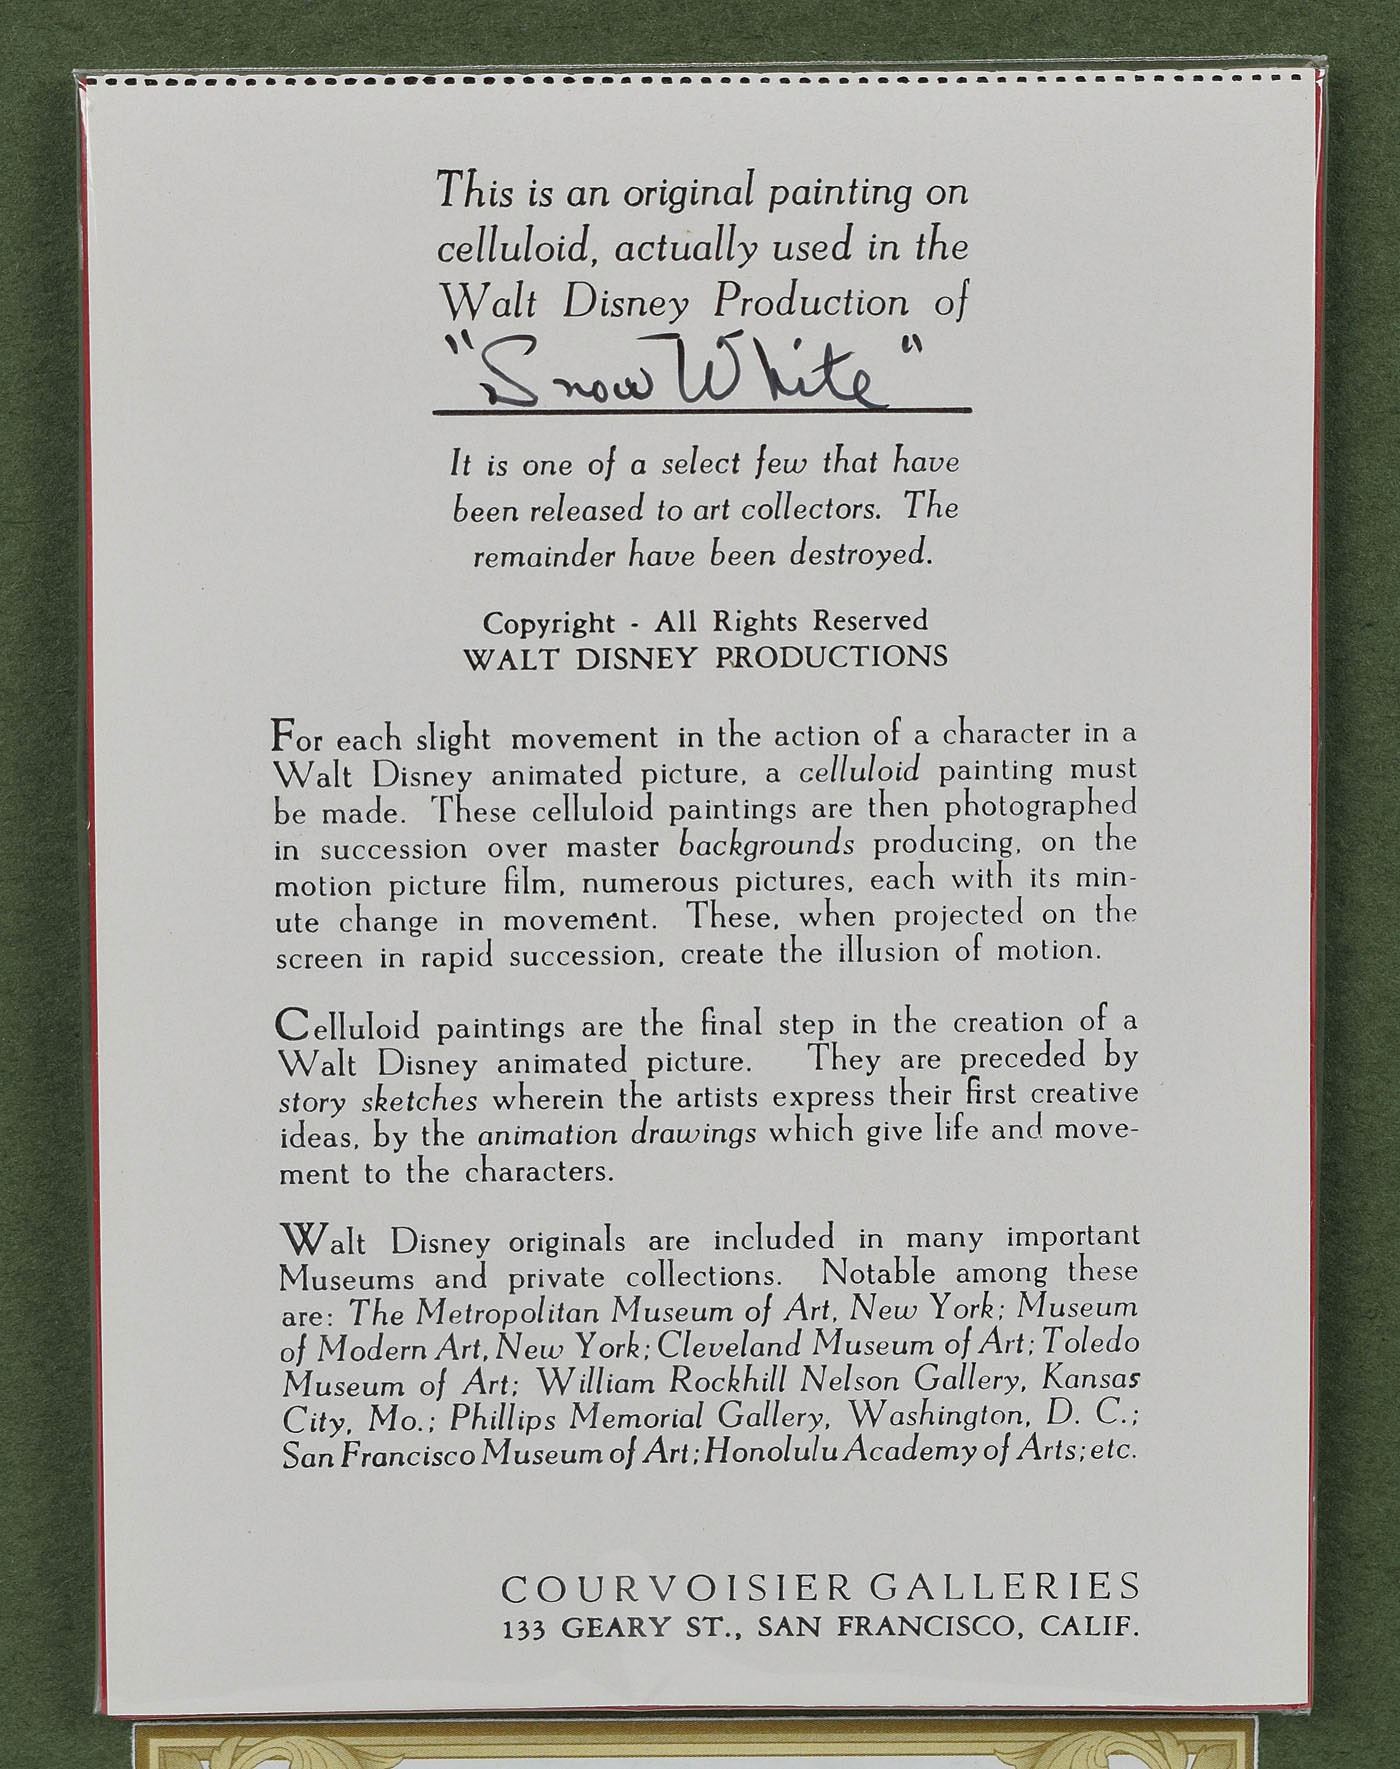 This is an original painting on
celluloid, actually used in the
Walt Disney Production of
"Snow White"
It is one of a select few that have
been released to art collectors. The
remainder have been destroyed.
Copyright - All Rights Reserved
WALT DISNEY PRODUCTIONS
For each slight movement in the action of a character in a
Walt Disney animated picture, a celluloid painting must
be made. These celluloid paintings are then photographed
in succession over master backgrounds producing, on the
motion picture film, numerous pictures, each with its min-
ute change in movement. These, when projected on the
screen in rapid succession, create the illusion of motion.
Celluloid paintings are the final step in the creation of a
Walt Disney animated picture. They are preceded by
story sketches wherein the artists express their first creative
ideas, by the animation drawings which give life and move-
ment to the characters.
Walt Disney originals are included in many important
Museums and private collections. Notable among these
are: The Metropolitan Museum of Art, New York; Museum
of Modern Art, New York; Cleveland Museum of Art; Toledo
Museum of Art; William Rockhill Nelson Gallery, Kansas
City, Mo.; Phillips Memorial Gallery, Washington, D. C.;
San Francisco Museum of Art; Honolulu Academy of Arts; etc.
COURVOISIER GALLERIES
133 GEARY ST., SAN FRANCISCO, CALIF.